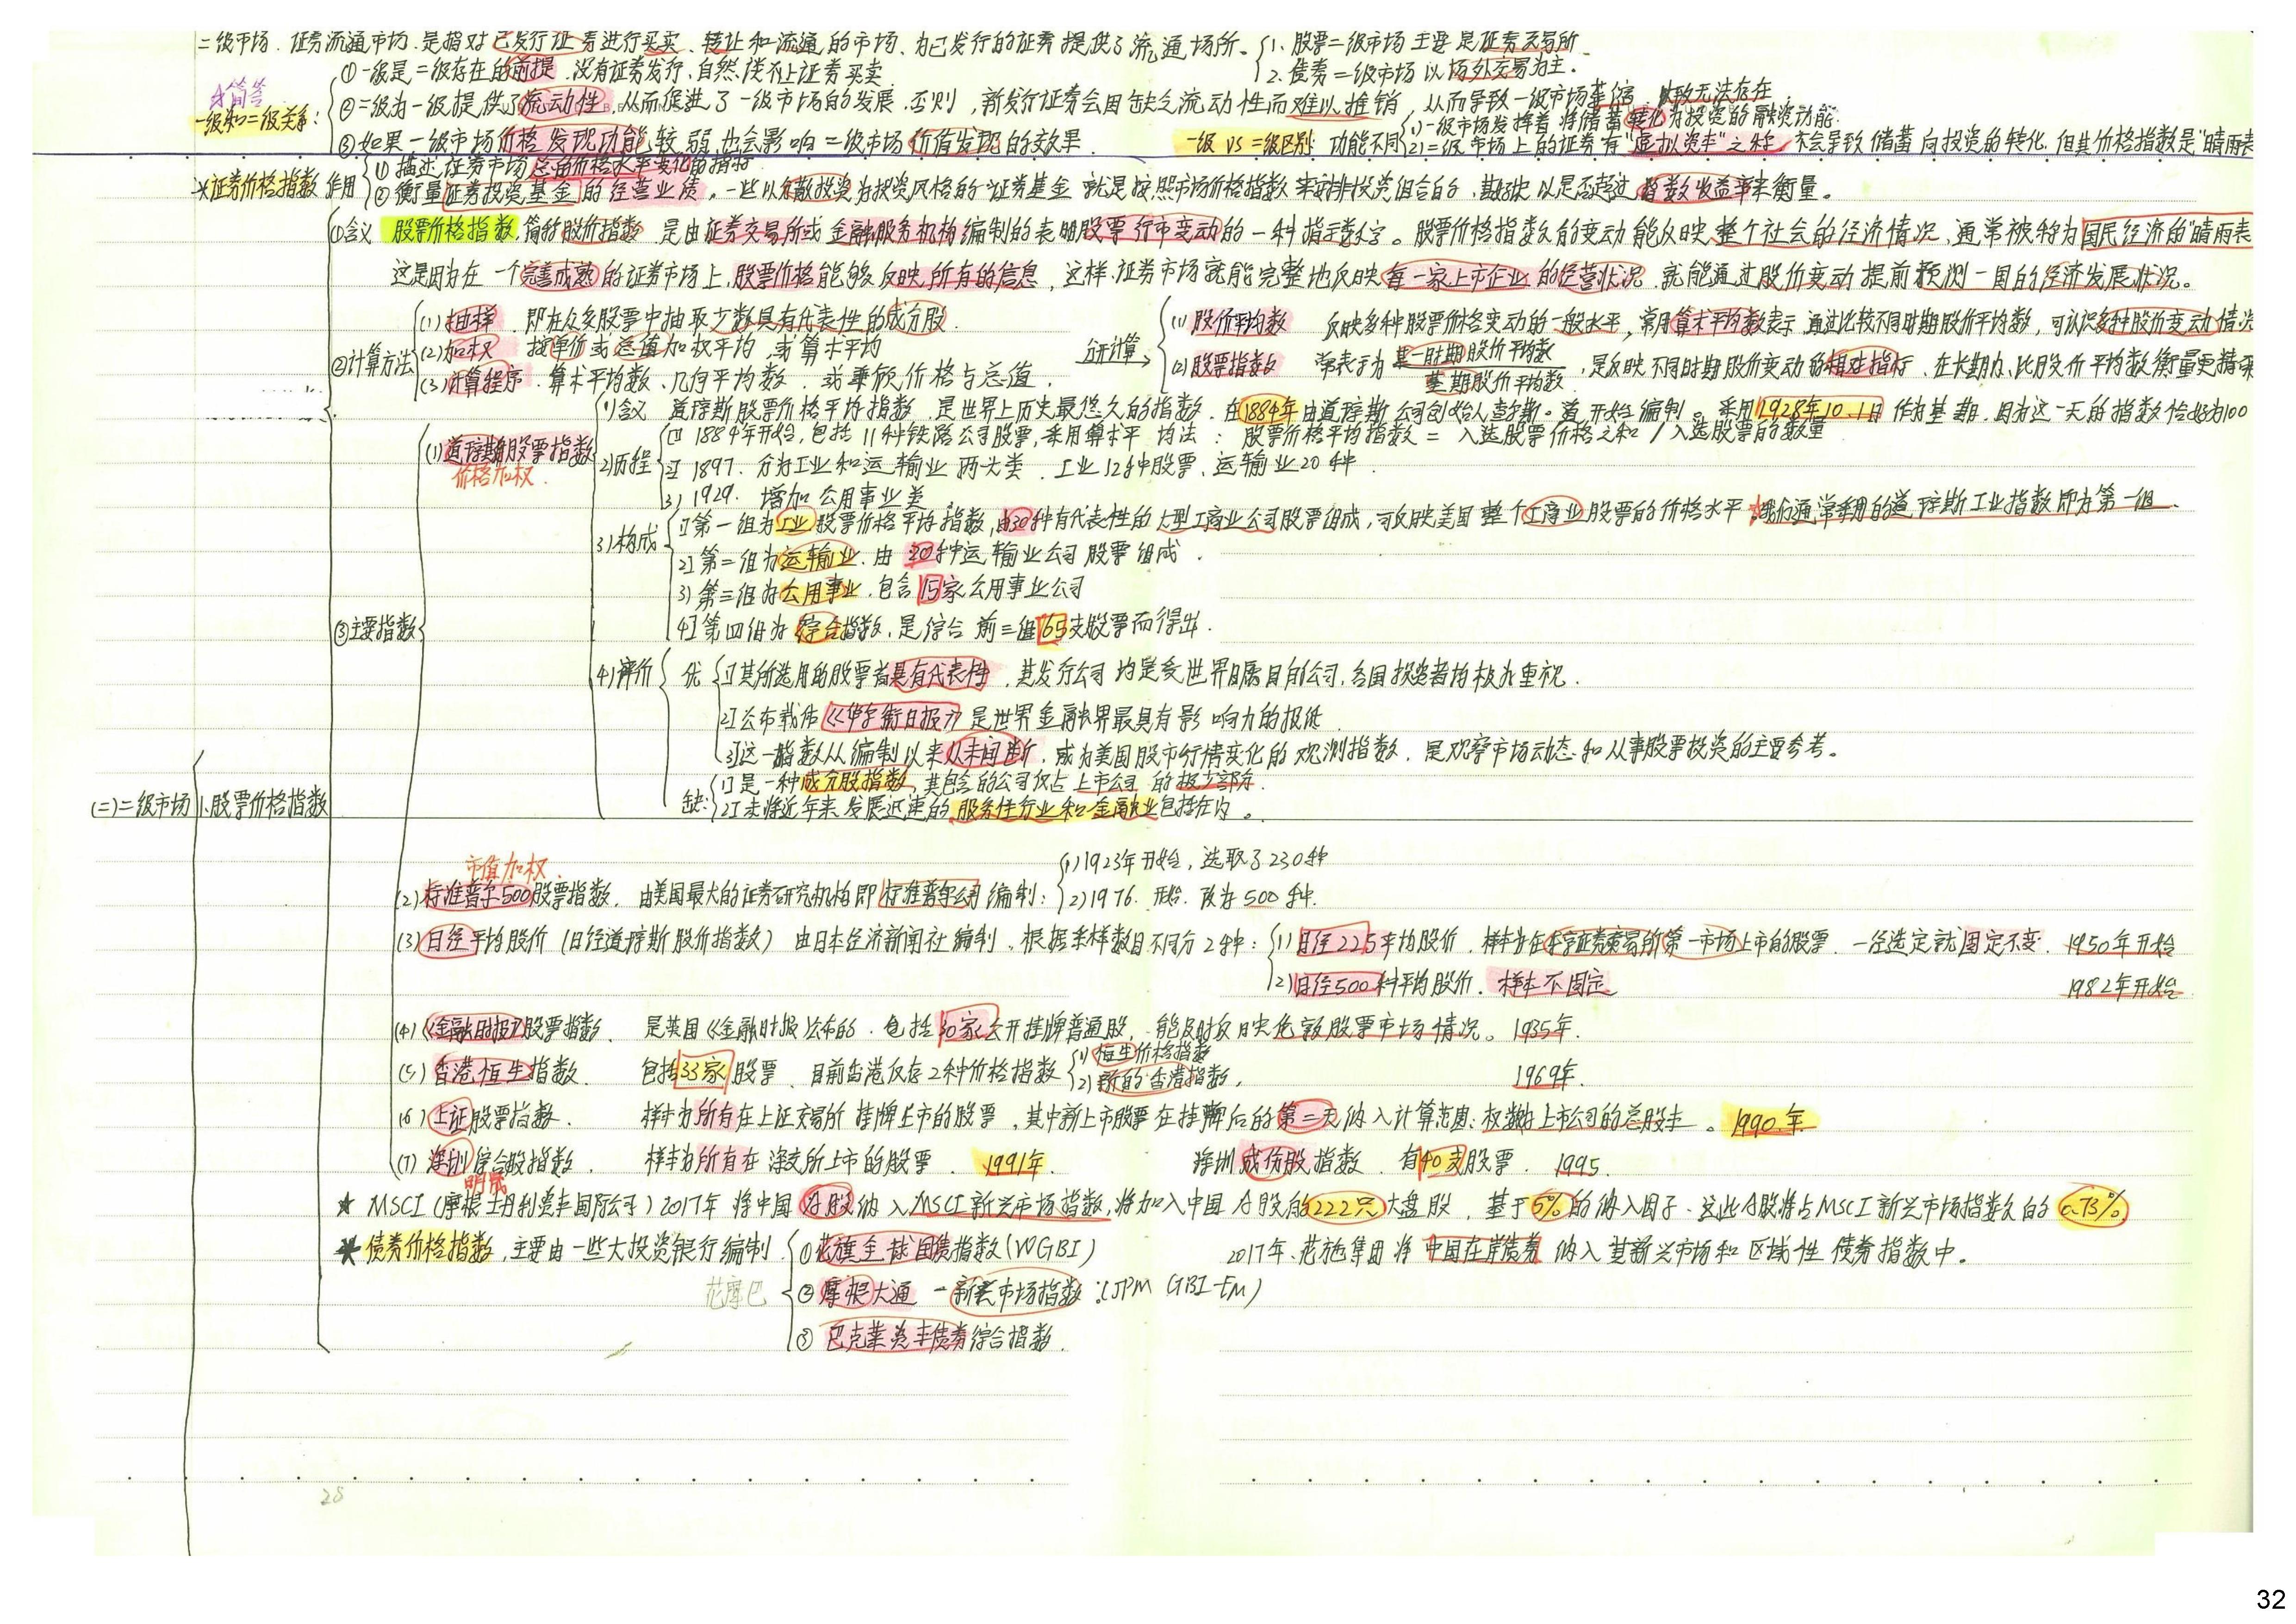 二级市场. 证券流通市场. 是指对已发行证券进行买卖、转让和流通的市场、为已发行的证券提供了流通场所。
1. 股票二级市场主要是证券交易所
2. 债券二级市场以场外交易为主.
☆简答
一级和二级关系:
①一级是二级存在的前提. 没有证券发行、自然谈不上证券买卖
②二级为一级提供了流动性, 从而促进了一级市场的发展. 否则, 新发行证券会因缺乏流动性而难以推销 从而导致一级市场萎缩. 以致无法存在.
③如果一级市场价格发现功能较弱. 也会影响二级市场价值发现的效果.
一级 VS 二级区别: 功能不同
(1)一级市场发挥着将储蓄转化为投资的融资功能.
(2)二级市场上的证券有"虚拟资本"之称, 不会导致储蓄向投资的转化. 但其价格指数是"晴雨表
※证券价格指数 作用
① 描述证券市场总的价格水平变化的指标
② 衡量证券投资基金的经营业绩。一些以分散投资为投资风格的证券基金就是按照市场价格指数来安排投资组合的, 其成败以是否超过指数收益率来衡量。
①含义 股票价格指数. 简称股价指数 是由证券交易所或金融服务机构编制的表明股票行市变动的一种指示数字。股票价格指数的变动能反映整个社会的经济情况、通常被称为国民经济的"晴雨表
这是因为在一个完善成熟的证券市场上, 股票价格能够反映所有的信息, 这样证券市场就能完整地反映每一家上市企业的经营状况. 就能通过股价变动提前预测一国的经济发展状况。
②计算方法
(1)抽样. 即在众多股票中抽取少数具有代表性的成分股.
(2)加权 按单价或总值加权平均. 或算术平均
(3)计算程序. 算术平均数、几何平均数. 或兼顾价格与总值.
分开计算→
(1) 股价平均数 反映多种股票价格变动的一般水平, 常用算术平均数表示 通过比较不同时期股价平均数, 可认识多种股价变动情况
(2)股票指数 常表示为 某一时期股价平均数/基期股价平均数, 是反映不同时期股价变动的相对指标. 在长期内、比股价平均数衡量更精确
③主要指数
(1)道琼斯股票指数
价格加权.
1)含义 道琼斯股票价格平均指数. 是世界上历史最悠久的指数. 在1884年由道琼斯公司创始人查尔斯。道开始编制。采用1928年10.1日作为基期. 因为这一天的指数恰好为100
2)历程
1] 1884年开始, 包括11种铁路公司股票, 采用算术平均法: 股票价格平均指数 = 入选股票价格之和 / 入选股票的数量
2] 1897. 分为工业和运输业两大类. 工业12种股票、运输业20种.
3) 1929. 增加公用事业类.
3)构成
1]第一组为工业股票价格平均指数, 由30种有代表性的大型工商业公司股票组成, 可反映美国整个工商业股票的价格水平. 我们通常采用的道琼斯工业指数即为第一组.
2]第二组为运输业. 由20种运输业公司股票组成.
3)第三组为公用事业. 包含15家公用事业公司
4]第四组为综合指数、是综合前三组65支股票而得出.
4)评价
优
1]其所选用的股票者具有代表性, 其发行公司均是受世界瞩目的公司, 各国投资者均极为重视.
2]公布载体《华尔街日报》是世界金融界最具有影响力的报纸
3]这一指数从编制以来从未间断. 成为美国股市行情变化的观测指数. 是观察市场动态和从事股票投资的主要参考。
缺:
1]是一种成分股指数, 其包含的公司仅占上市公司的极少部分.
2]未将近年来发展迅速的服务性行业和金融业包括在内。
(二)二级市场 1、股票价格指数
市值加权.
(2)标准普尔500股票指数. 由美国最大的证券研究机构即标准普尔公司编制:
(1)1923年开始, 选取了230种
(2)1976. 开始. 改为500种.
(3)日经平均股价 (日经道琼斯股价指数) 由日本经济新闻社编制, 根据采样数目不同分2种:
(1)日经225平均股价. 样本为在东京证券交易所第一市场上市的股票. 一经选定就固定不变. 1950年开始
(2)日经500种平均股价. 样本不固定 1982年开始
(4)《金融时报》股票指数. 是英国《金融时报》公布的. 包括30家公开挂牌普通股, 能及时反映伦敦股票市场情况。1935年.
(5)香港恒生指数. 包括33家股票、目前香港仅存2种价格指数
(1)恒生价格指数
(2)新的香港指数, 1969年.
(6)上证股票指数. 样本为所有在上证交易所挂牌上市的股票, 其中新上市股票在挂牌后的第二天纳入计算范围; 权数为上市公司的总股本。1990.年
(7)深圳综合股指数. 样本为所有在深交所上市的股票. 1991年. 深圳成份股指数. 有40支股票. 1995.
明晟
★ MSCI (摩根士丹利资本国际公司) 2017年将中国A股纳入MSCI新兴市场指数, 将加入中国A股的222只大盘股, 基于5%的纳入因子、这些A股将占MSCI新兴市场指数的0.73%.
※ 债券价格指数, 主要由一些大投资银行编制.
①花旗全球国债指数(WGBI) 2017年、花旗集团将中国在岸债券纳入其新兴市场和区域性债券指数中。
花摩巴
②摩根大通-新兴市场指数:(JPM GBI-EM)
③ 巴克莱资本债券综合指数.
28
32